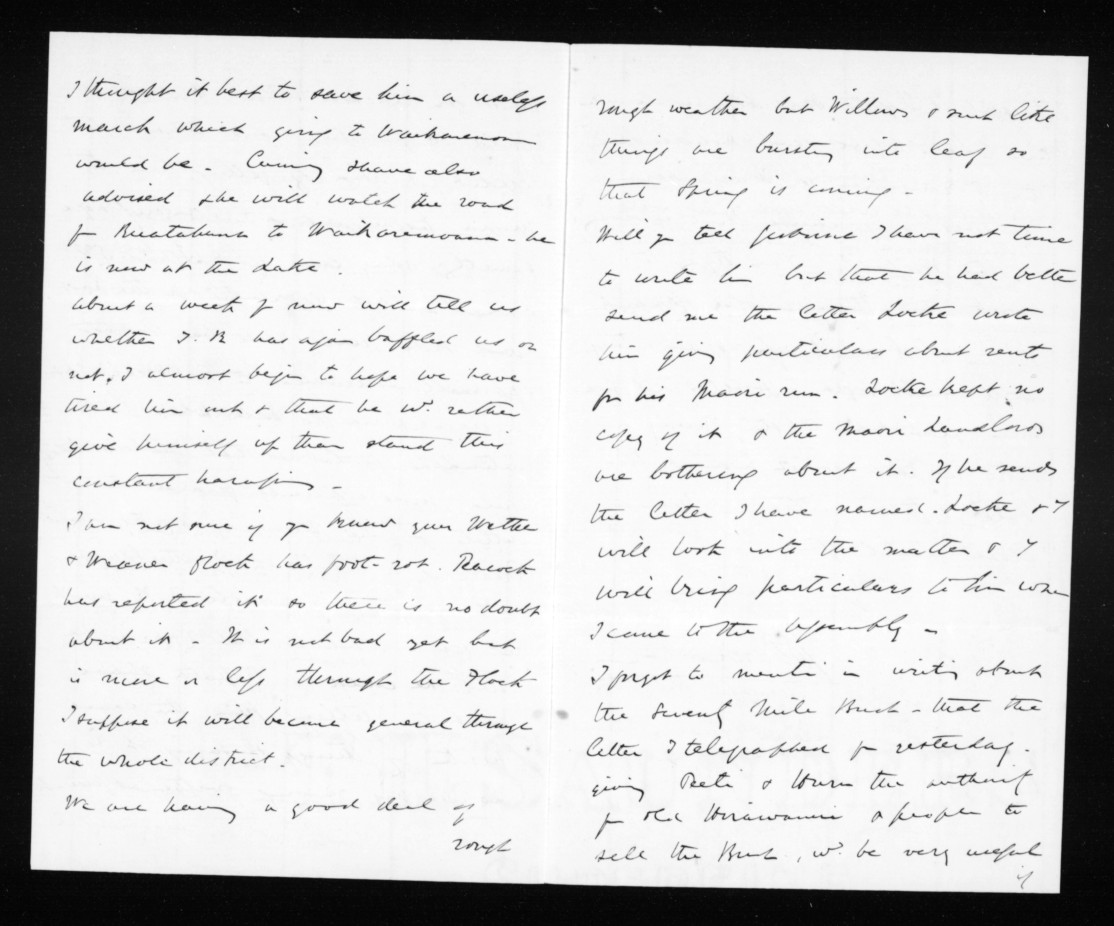 I thought it best to save him a useless
march which going to Waikaremoana
would be. Cuming I have also
advised & he will watch the road
fr Ruatahuna to Waikaremoana - he
is now at the Lake.
about a week fr now will tell us
whether T. K has again baffled us or
not. I almost begin to hope we have
tired him out & that he wd. rather
give himself up than stand this
constant harassing -
I am not sure if yr know your Wether
& Weaner flock has foot-rot. Peacock
has reported it so there is no doubt
about it - It is not bad yet but
is more or less through the Flock
I suppose it will become general through
the whole district.
We are having a good deal of
rough
rough weather but Willows & such like
things are bursting into leaf so
that Spring is coming -
Will yr tell I have not time
to write him but that he had better
send me the letter Locke wrote
him giving particulars about rents
for his Maori run. Locke kept no
copy of it & the Maori Landlords
are bothering about it. If he sends
the letter I have named. Locke & I
will look into the matter & I
will bring particulars to him when
I come to the Assembly -
I forgot to mention in writing about
the Seventy Mile Bush - that the
letter I telegraphed fr yesterday.
giving Peeti & Huru the authority
fr old Hirawanu & people to
sell the Bush, wd. be very useful
if